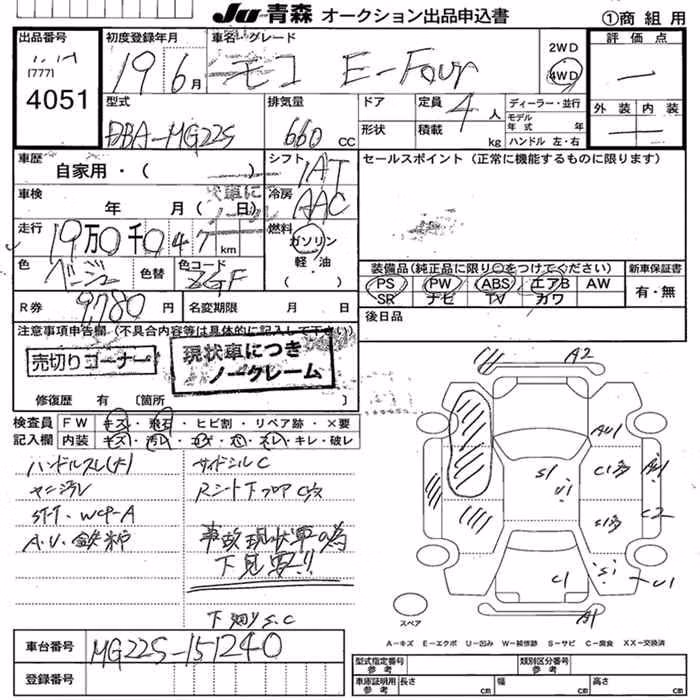 Ju 青森 オークション出品申込書 ①商組用
出品番号 初度登録年月 車名・グレード 2WD 評価点
(777) 19年6月 モコ E-Four 4WD
4051 型式 排気量 ドア 定員 4人 ディーラー・並行 外装 内装
DBA-MG22S 660cc 形状 積載 kg モデル年式 年式 ハンドル 左・右
車歴 自家用・( ) シフト IAT セールスポイント (正常に機能するものに限ります)
車検 年 月( 日) 冷房 AAC
走行 19万0千047km 燃料 ガソリン 軽・油
色 ベージュ 色替 色コード ZGF 装備品(純正品に限り○をつけてください) 新車保証書
PS PW ABS エアB AW 有・無
SR ナビ TV カワ
R券 9,780円 名変期限 月 日 後日品
注意事項申告欄 (不具合内容等は具体的に記入して下さい)
売切りコーナー 現状車につき
ノークレーム
修復歴 有 〔箇所 〕
検査員 FW キズ・飛石・ヒビ割・リペア跡・×要
記入欄 内装 キズ・汚レ・コゲ・穴・スレ・キレ・破レ
ハンドルスレ(大) サイドシルC
ヤニヨゴレ Rシート下フロアC穴
ST-T、WCP-A
A.U.鉄粉 事故現状車の為
下見要!!
下廻りS.C
A2
AU1
S1 U1 C1 AU1
C2
S1 U1
C1
A1
スペア
A-キズ E-エクボ U-凹み W-補修跡 S-サビ C-腐食 XX-交換済
車台番号 MG22S-151240
登録番号
型式指定番号 参考 類別区分番号 参考
車庫証明用 参考 長さ cm 幅 cm 高さ cm